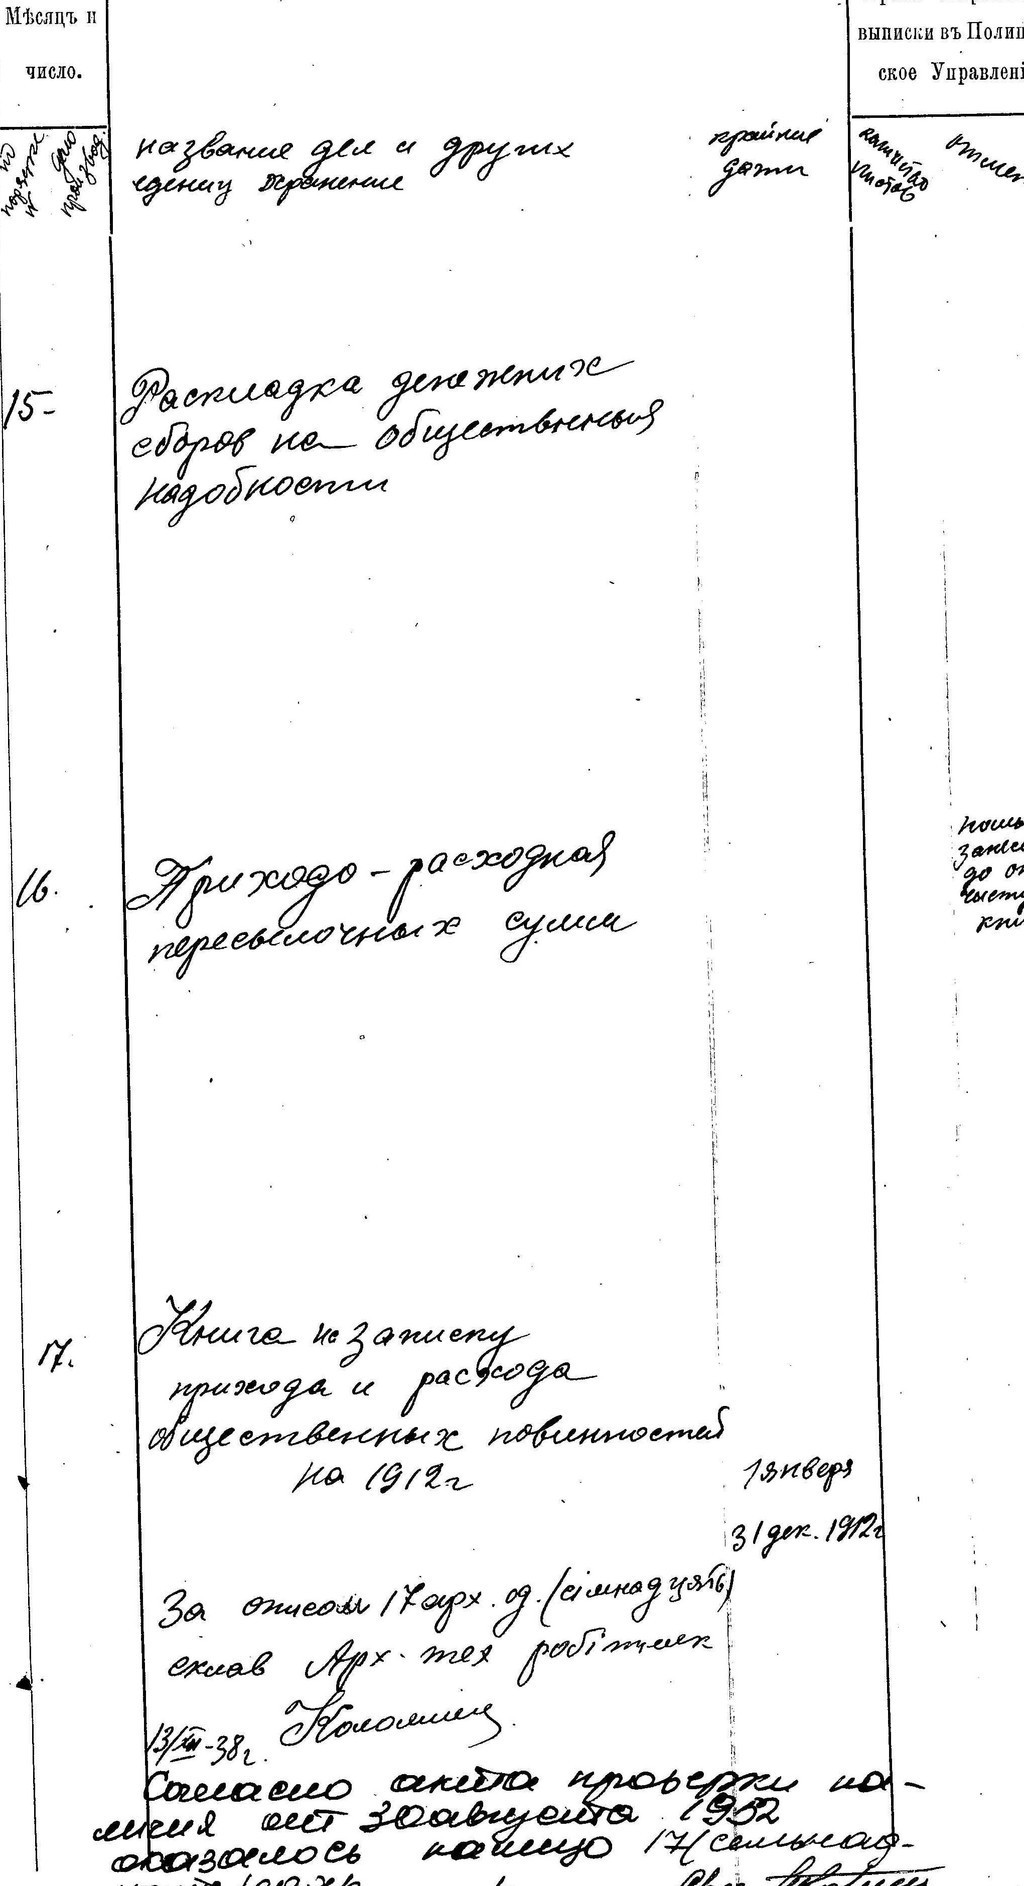 Мѣсяцъ и
число.
выписки въ Полиц
ское Управлені
по порядке №
дело производ.
название дел и других
едениц хранение
крайние
даты
количество
листов
отмет
15-
Раскладка денежних
сборов на общественныя
надобности
16.
Приходо-расходная
пересылочных сумм
до оп
17.
Книга на записку
прихода и расхода
общественных повинностей
на 1912г
1 января
31 дек. 1912г
За описом 17 арх. од. (сімнадцять)
склав Арх-тех робітник
Коломиец
13/XII-38г.
Согласно акта проверки на-
личия от 30 августа 1952
оказалось налицо 17 (семьнад-